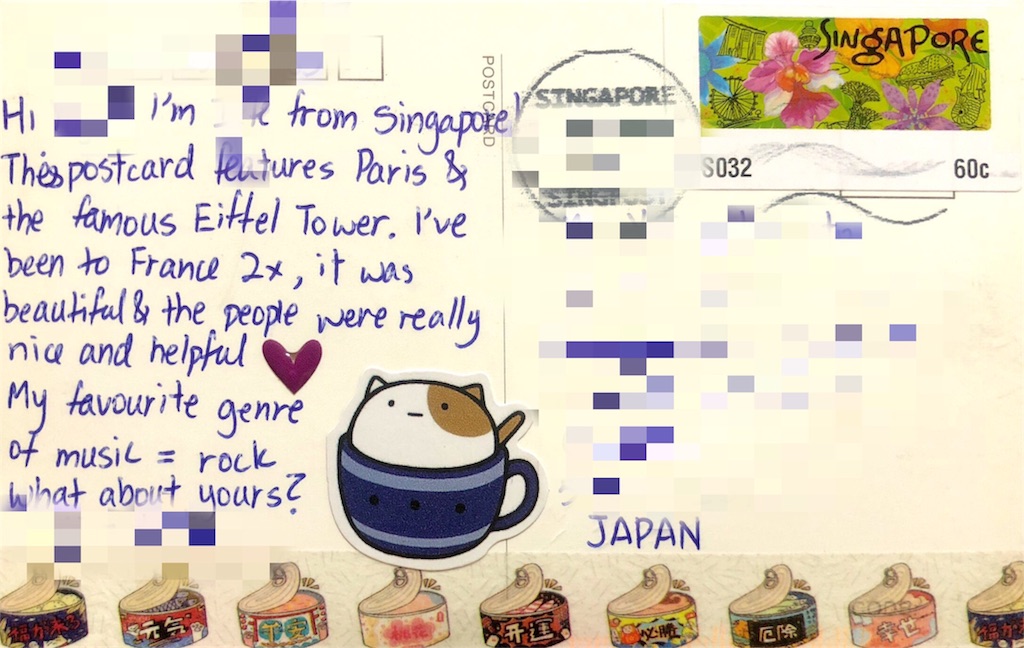 Hi I'm from Singapore!
This postcard features Paris &
the famous Eiffel Tower. I've
been to France 2x, it was
beautiful & the people were really
nice and helpful
My favourite genre
of music = rock
what about yours?
POSTCARD
SINGAPORE
SINGPOST
SINGAPORE
S032 60c
JAPAN
福が来る 元気 平安 桃花 开運 必勝 厄除 幸世